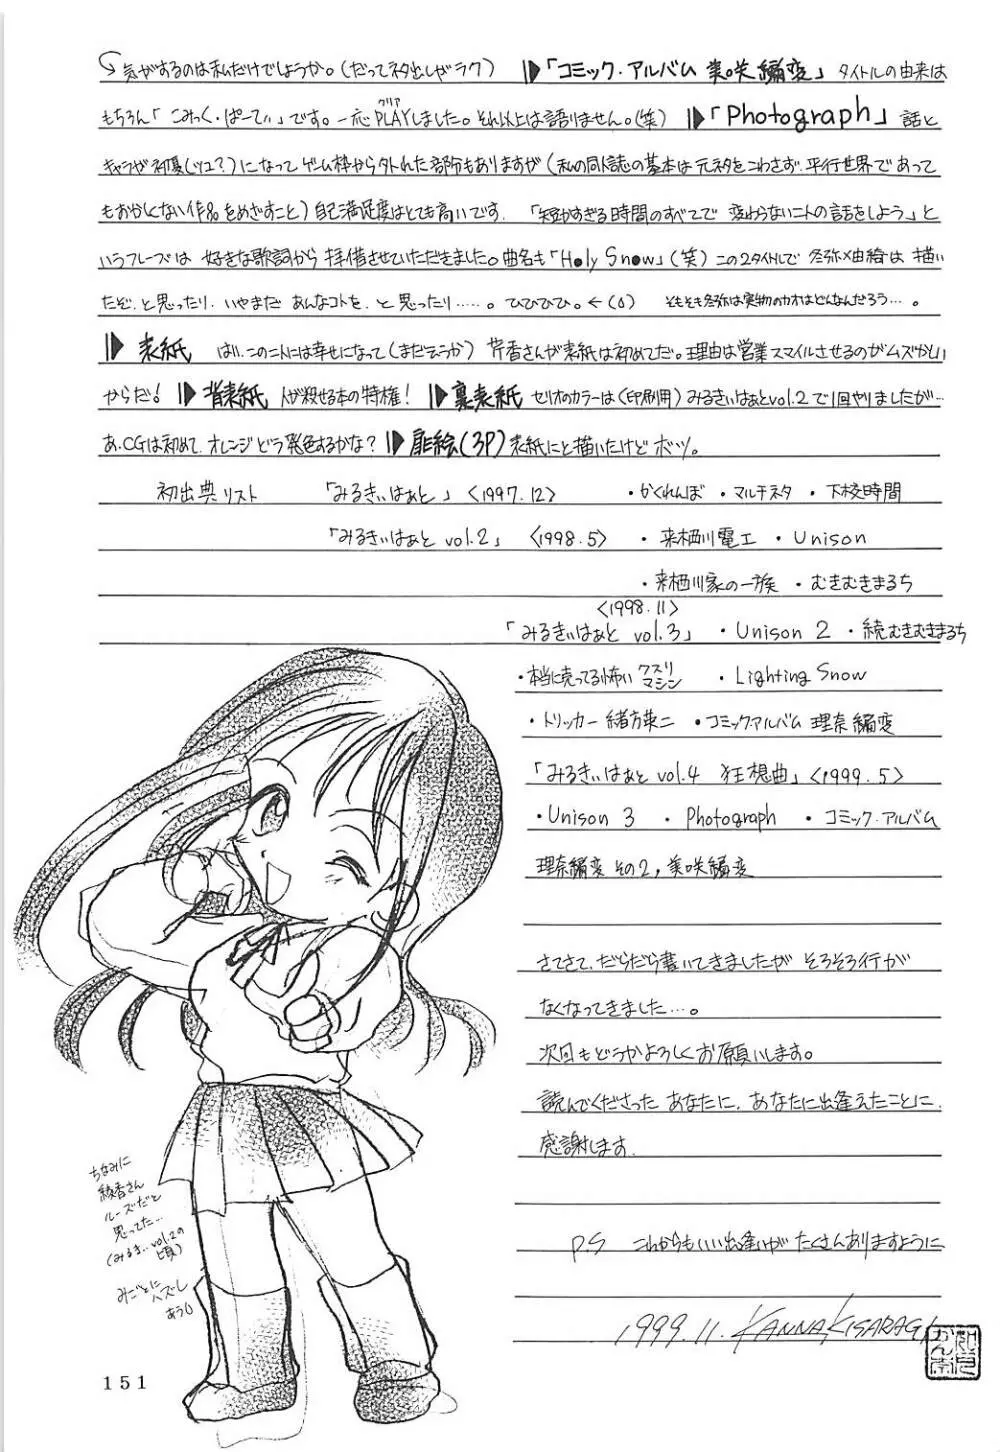 気がするのは私だけでしょうか。(だってネタ出しがラク) 「コミック・アルバム 美咲編変」 タイトルの由来は
もちろん「こみっく・ぱーてぃ」です。一応PLAYしました。それ以上は語りません。(笑) 「Photograph」 話と
クリア
キャラが初優(ツユ?)になってゲーム枠から外れた部分もありますが(私の同人誌の基本は元ネタをこわさず、平行世界であって
もおかしくない作品をめざすこと)自己満足度はとても高いです。「短かすぎる時間のすべてで 変わらない二人の話をしよう」と
いうフレーズは 好きな歌詞から 拝借させていただきました。曲名も「Holy Snow」(笑) この2タイトルで 冬弥×由綺は 描い
たぞ、と思ったり、いやまだ あんなコトを、と思ったり……。ひひひひ。← そもそも冬弥は実物のカオはどんなんだろう…。
表紙 はい、この二人には幸せになって(まだそうか) 芹香さんが表紙は初めてだ。理由は営業スマイルさせるのがムズかしい
からだ! 背表紙 人が殺せる本の特権! 裏表紙 セリオのカラーは(印刷用)みるきぃはぁとvol.2で1回やりましたが…
あ、CGは初めて、オレンジどう発色するかな? 扉絵(3P) 表紙にと描いたけどボツ。
初出典リスト 「みるきぃはぁと」<1997.12> ・かくれんぼ ・マルチネタ ・下校時間
「みるきぃはぁと vol.2」 <1998.5> ・来栖川電工 ・Unison
・来栖川家の一族 ・むきむきまるち
<1998.11>
「みるきぃはぁと vol.3」 ・Unison 2 ・続むきむきまるち
・本当に売ってる怖いクスリマシン ・Lighting Snow
・トリッカー緒方英二 ・コミックアルバム 理奈編変
「みるきぃはぁと vol.4 狂想曲」<1999.5>
・Unison 3 ・Photograph ・コミック・アルバム
理奈編変 その2, 美咲編変
さてさて、だらだら書いてきましたが そろそろ行が
なくなってきました…。
次回もどうかよろしくお願いします。
読んでくださった あなたに、あなたに出逢えたことに、
感謝します。
P.S これからもいい出逢いが たくさんありますように
1999.11. KANNA KISARAGI
如月かんな
ちなみに
綾香さん
ルーズだと
思ってた…
(みるき‥vol.2の頃)
みごとに
ハズし
あう
151